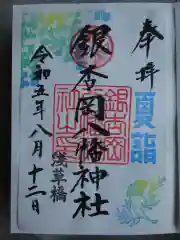 奉拝
夏詣
銀杏岡八幡神社
浅草橋
令和五年八月十二日